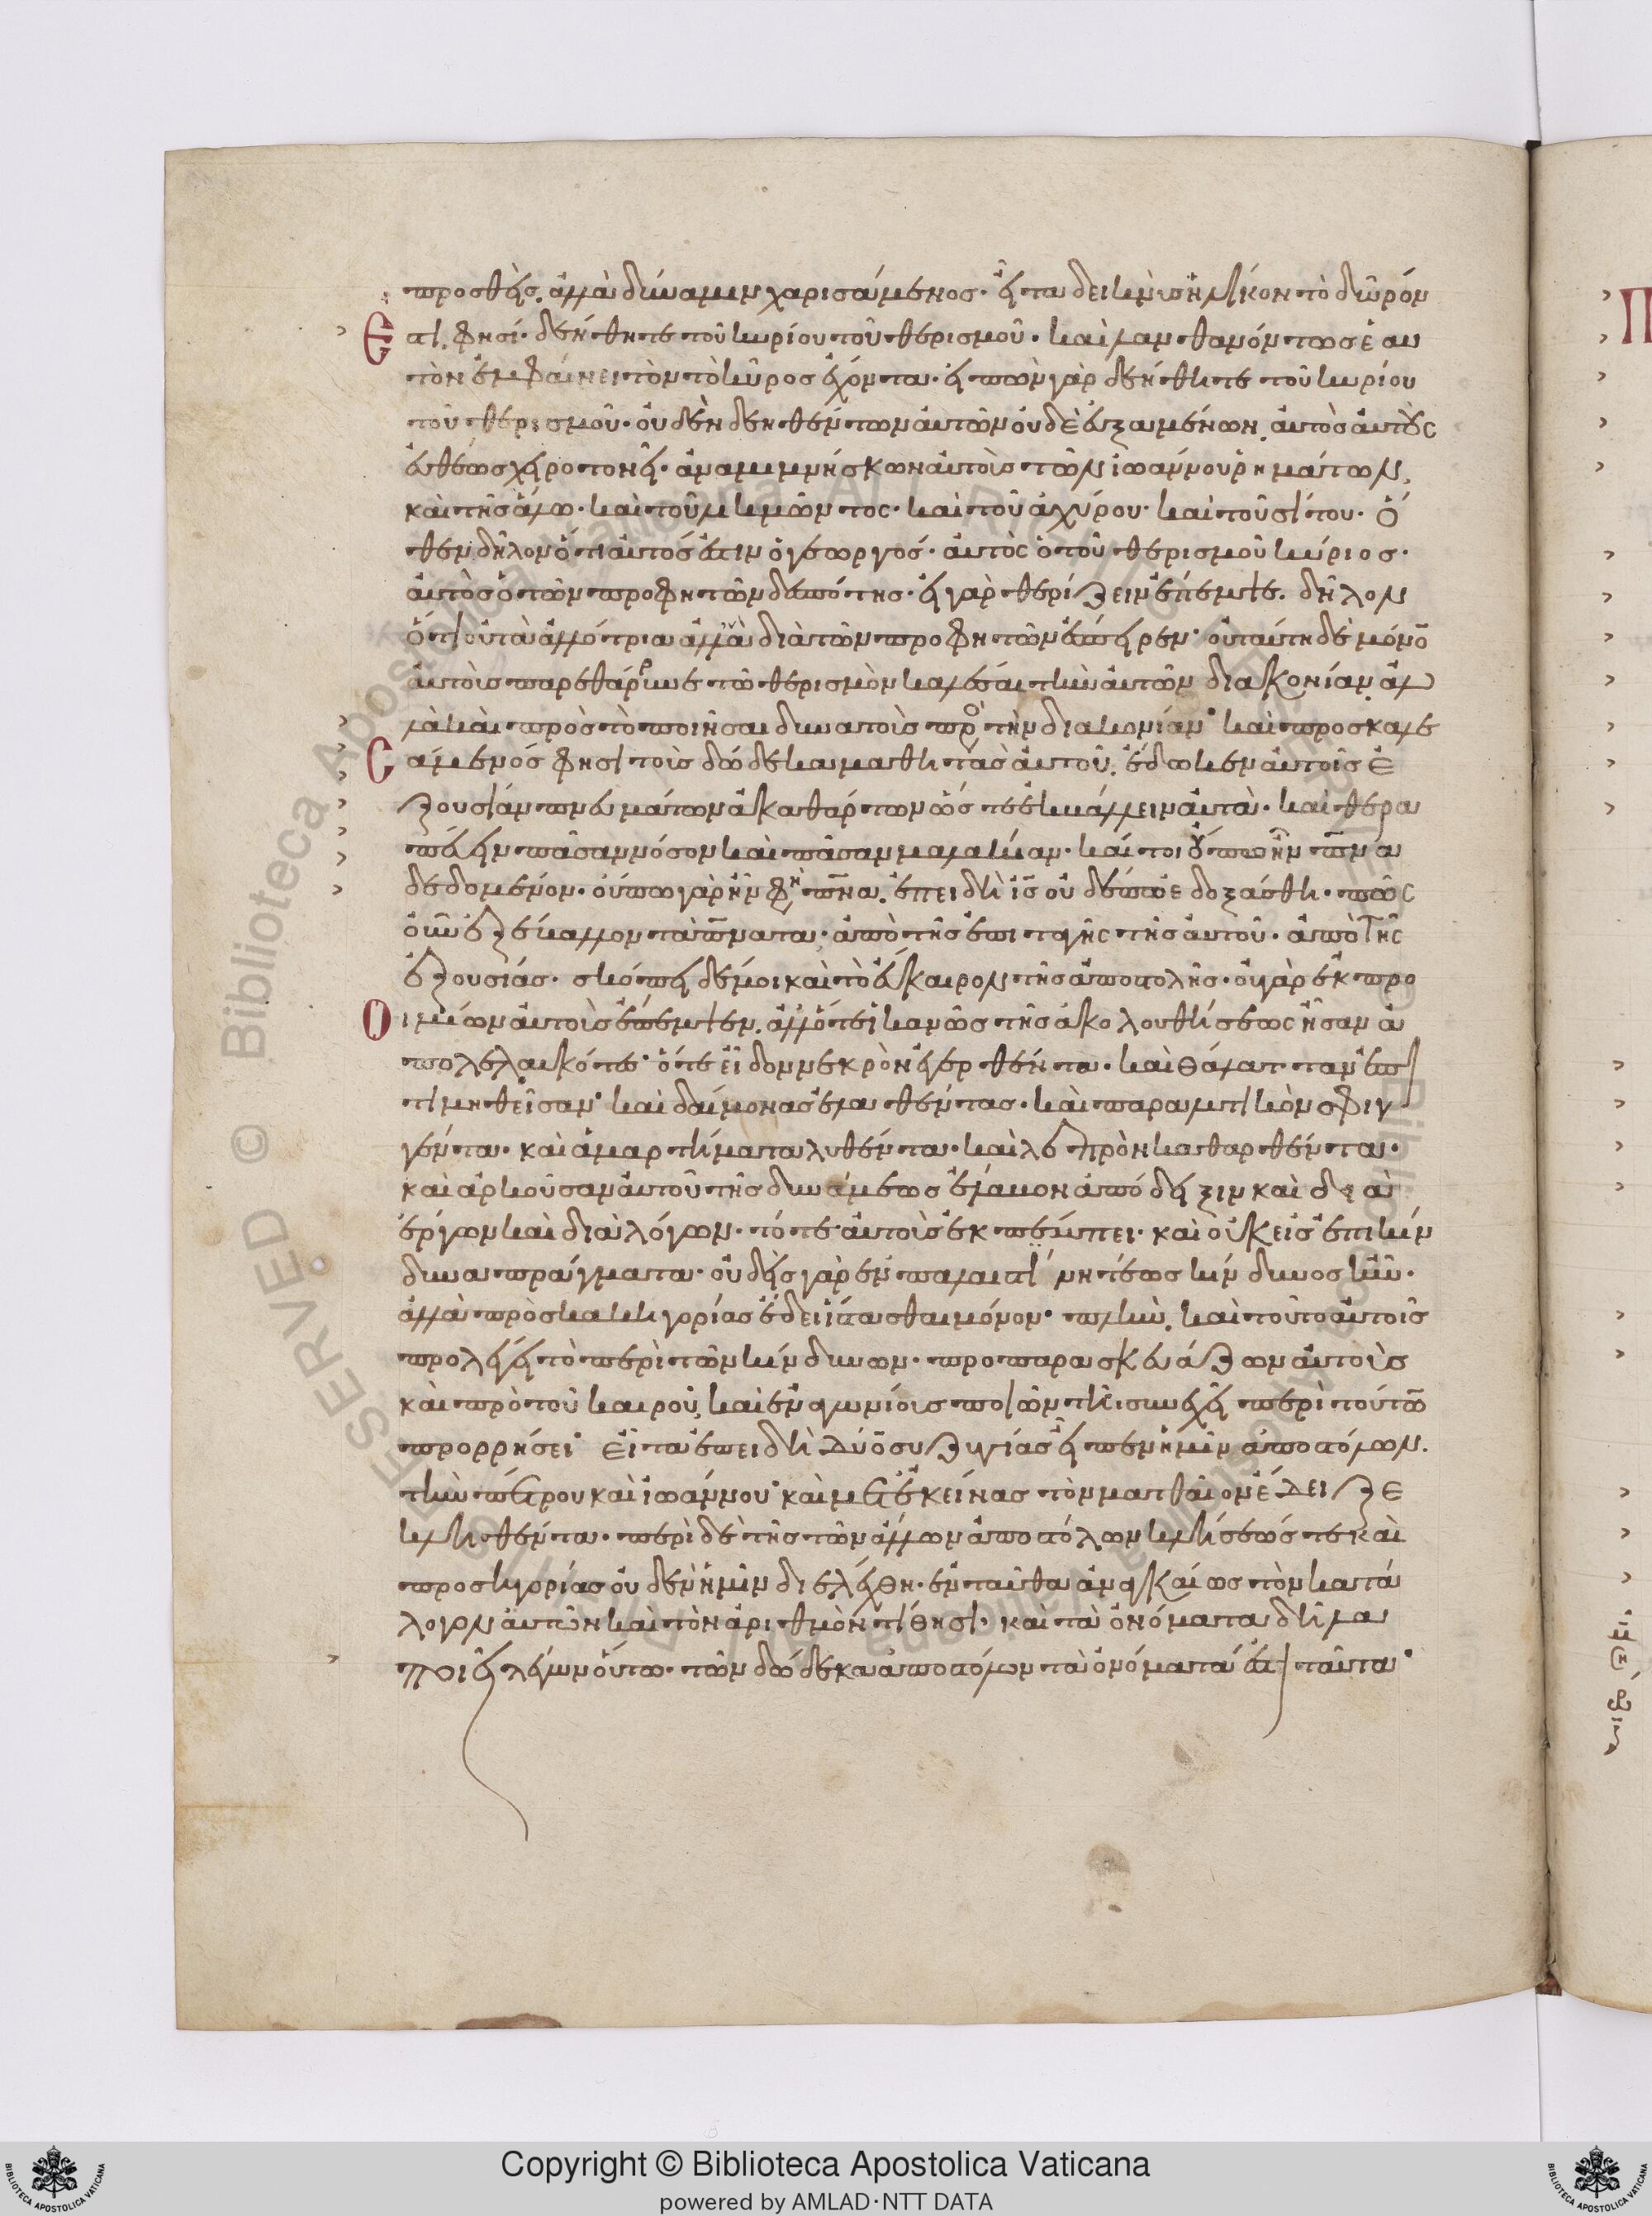 προσθεὶς, ἀλλὰ δύναμιν χαρισάμενος· εἶτα δεικνὺς ἡλίκον τὸ δῶρόν
Ἐστι, φησί· δεήθητε τοῦ κυρίου τοῦ θερισμοῦ· καὶ λανθανόντως ἑαυ
τὸν ἐμφαίνει τὸν τὸ κῦρος ἔχοντα· εἰπὼν γὰρ δεήθητε τοῦ κυρίου
τοῦ θερισμοῦ· οὐδὲν δεηθέντων αὐτῶν οὐδὲ εὐξαμένων, αὐτὸς αὐτοὺς
εὐθέως χειροτονεῖ· ἀναμιμνήσκων αὐτοὺς τῶν ἰωάννου ῥημάτων,
καὶ τῆς ἅλω· καὶ τοῦ λικμῶντος· καὶ τοῦ ἀχύρου· καὶ τοῦ σίτου· ὅ
θεν δῆλον ὅτι αὐτός ἐστιν ὁ γεωργός· αὐτὸς ὁ τοῦ θερισμοῦ κύριος·
αὐτὸς ὁ τῶν προφητῶν δεσπότης· εἰ γὰρ θερίζειν ἔπεμψε· δῆλον
ὅτι οὐ τὰ ἀλλότρια ἀλλὰ διὰ τῶν προφητῶν ἔσπειρεν· οὐ ταύτη δὲ μόνο̅
αὐτοὺς παρεθάρρυνε τῶ θερισμὸν καλέσαι τὴν αὐτῶν διακονίαν, ἀλ
λὰ καὶ πρὸς τὸ ποιῆσαι δυνατοὺς πρὸ τὴν διακονίαν· καὶ προσκαλε
Σάμενός φησι τοὺς δώδεκα μαθητὰς αὐτοῦ, ἔδωκεν αὐτοῖς ἐ
ξουσίαν πνευμάτων ἀκαθάρτων ὥστε ἐκβάλλειν αὐτὰ· καὶ θερα
πεύειν πᾶσαν νόσον καὶ πᾶσαν μαλακίαν· καί τοι οὔπω ἦν πν̅α
δεδομένον· οὔπω γὰρ ἦν φη πν̅α, ἐπειδὴ ις̅ οὐδέπω ἐδοξάσθη· πῶς
οὖν ἐξέβαλλον τὰ πν̅ματα· ἀπὸ τῆς ἐπιταγῆς τῆς αὐτοῦ· ἀπὸ τῆς
ἐξουσίας· σκόπει δέ μοι καὶ τὸ εὔκαιρον τῆς ἀποστολῆς· οὐ γὰρ ἐκ προ
Οιμίων αὐτοὺς ἔπεμψεν, ἀλλ ὅτε ἱκανῶς τῆς ἀκολουθήσεως ἦσαν ἀ
πολελαυκότες· ὅτε εἶδον νεκρὸν ἐγερθέντα· καὶ θάλατταν ἐπι
τιμηθεῖσαν· καὶ δαίμονας ἐλαθέντας· καὶ παραλυτικὸν σφιγ
γέντα· καὶ ἁμαρτήματα λυθέντα· καὶ λεπρὸν καθαρθέντα·
καὶ ἀρκοῦσαν αὐτοῦ τῆς δυνάμεως ἔλαβον ἀπόδειξιν καὶ διὰ
ἔργων καὶ διὰ λόγων· τότε αὐτοὺς ἐκπέμπει· καὶ οὐκ εἰς ἐπικίν
δυνα πράγματα· οὐδεὶς γὰρ ἐν παλαιστίνη τέως κίνδυνος ἦν·
ἀλλὰ πρὸς κακηγορίας ἔδει ἵστασθαι μόνον· πλὴν, καὶ τοῦτο αὐτοῖς
προλέγει τὸ περὶ τῶν κινδύνων· προπαρασκευάζων αὐτοὺς
καὶ πρὸ τοῦ καιροῦ, καὶ ἐναγωνίους ποιῶν τῆ συνεχεῖ περὶ τούτω̅
προρρήσει· Εἶτα ἐπειδὴ δύο συζυγίας εἶπεν ἡμῖν ἀποστόλων.
τὴν πέτρου καὶ ἰωάννου· καὶ μετ ἐκείνας τὸν ματθαῖον ἔδειξε
κληθέντα· περὶ δὲ τῆς τῶν ἄλλων ἀποστόλων κλήσεώς τε καὶ
προσηγορίας οὐδὲν ἡμῖν διελέχθη· ἐνταῦθα ἀναγκαίως τὸν κατά
λογον αὐτῶν καὶ τὸν ἀριθμὸν τίθησι· καὶ τὰ ὀνόματα δῆλα
ποιεῖ λέγων οὕτω· τῶν δώδεκα ἀποστόλων τὰ ὀνόματά ἐστι ταῦτα·